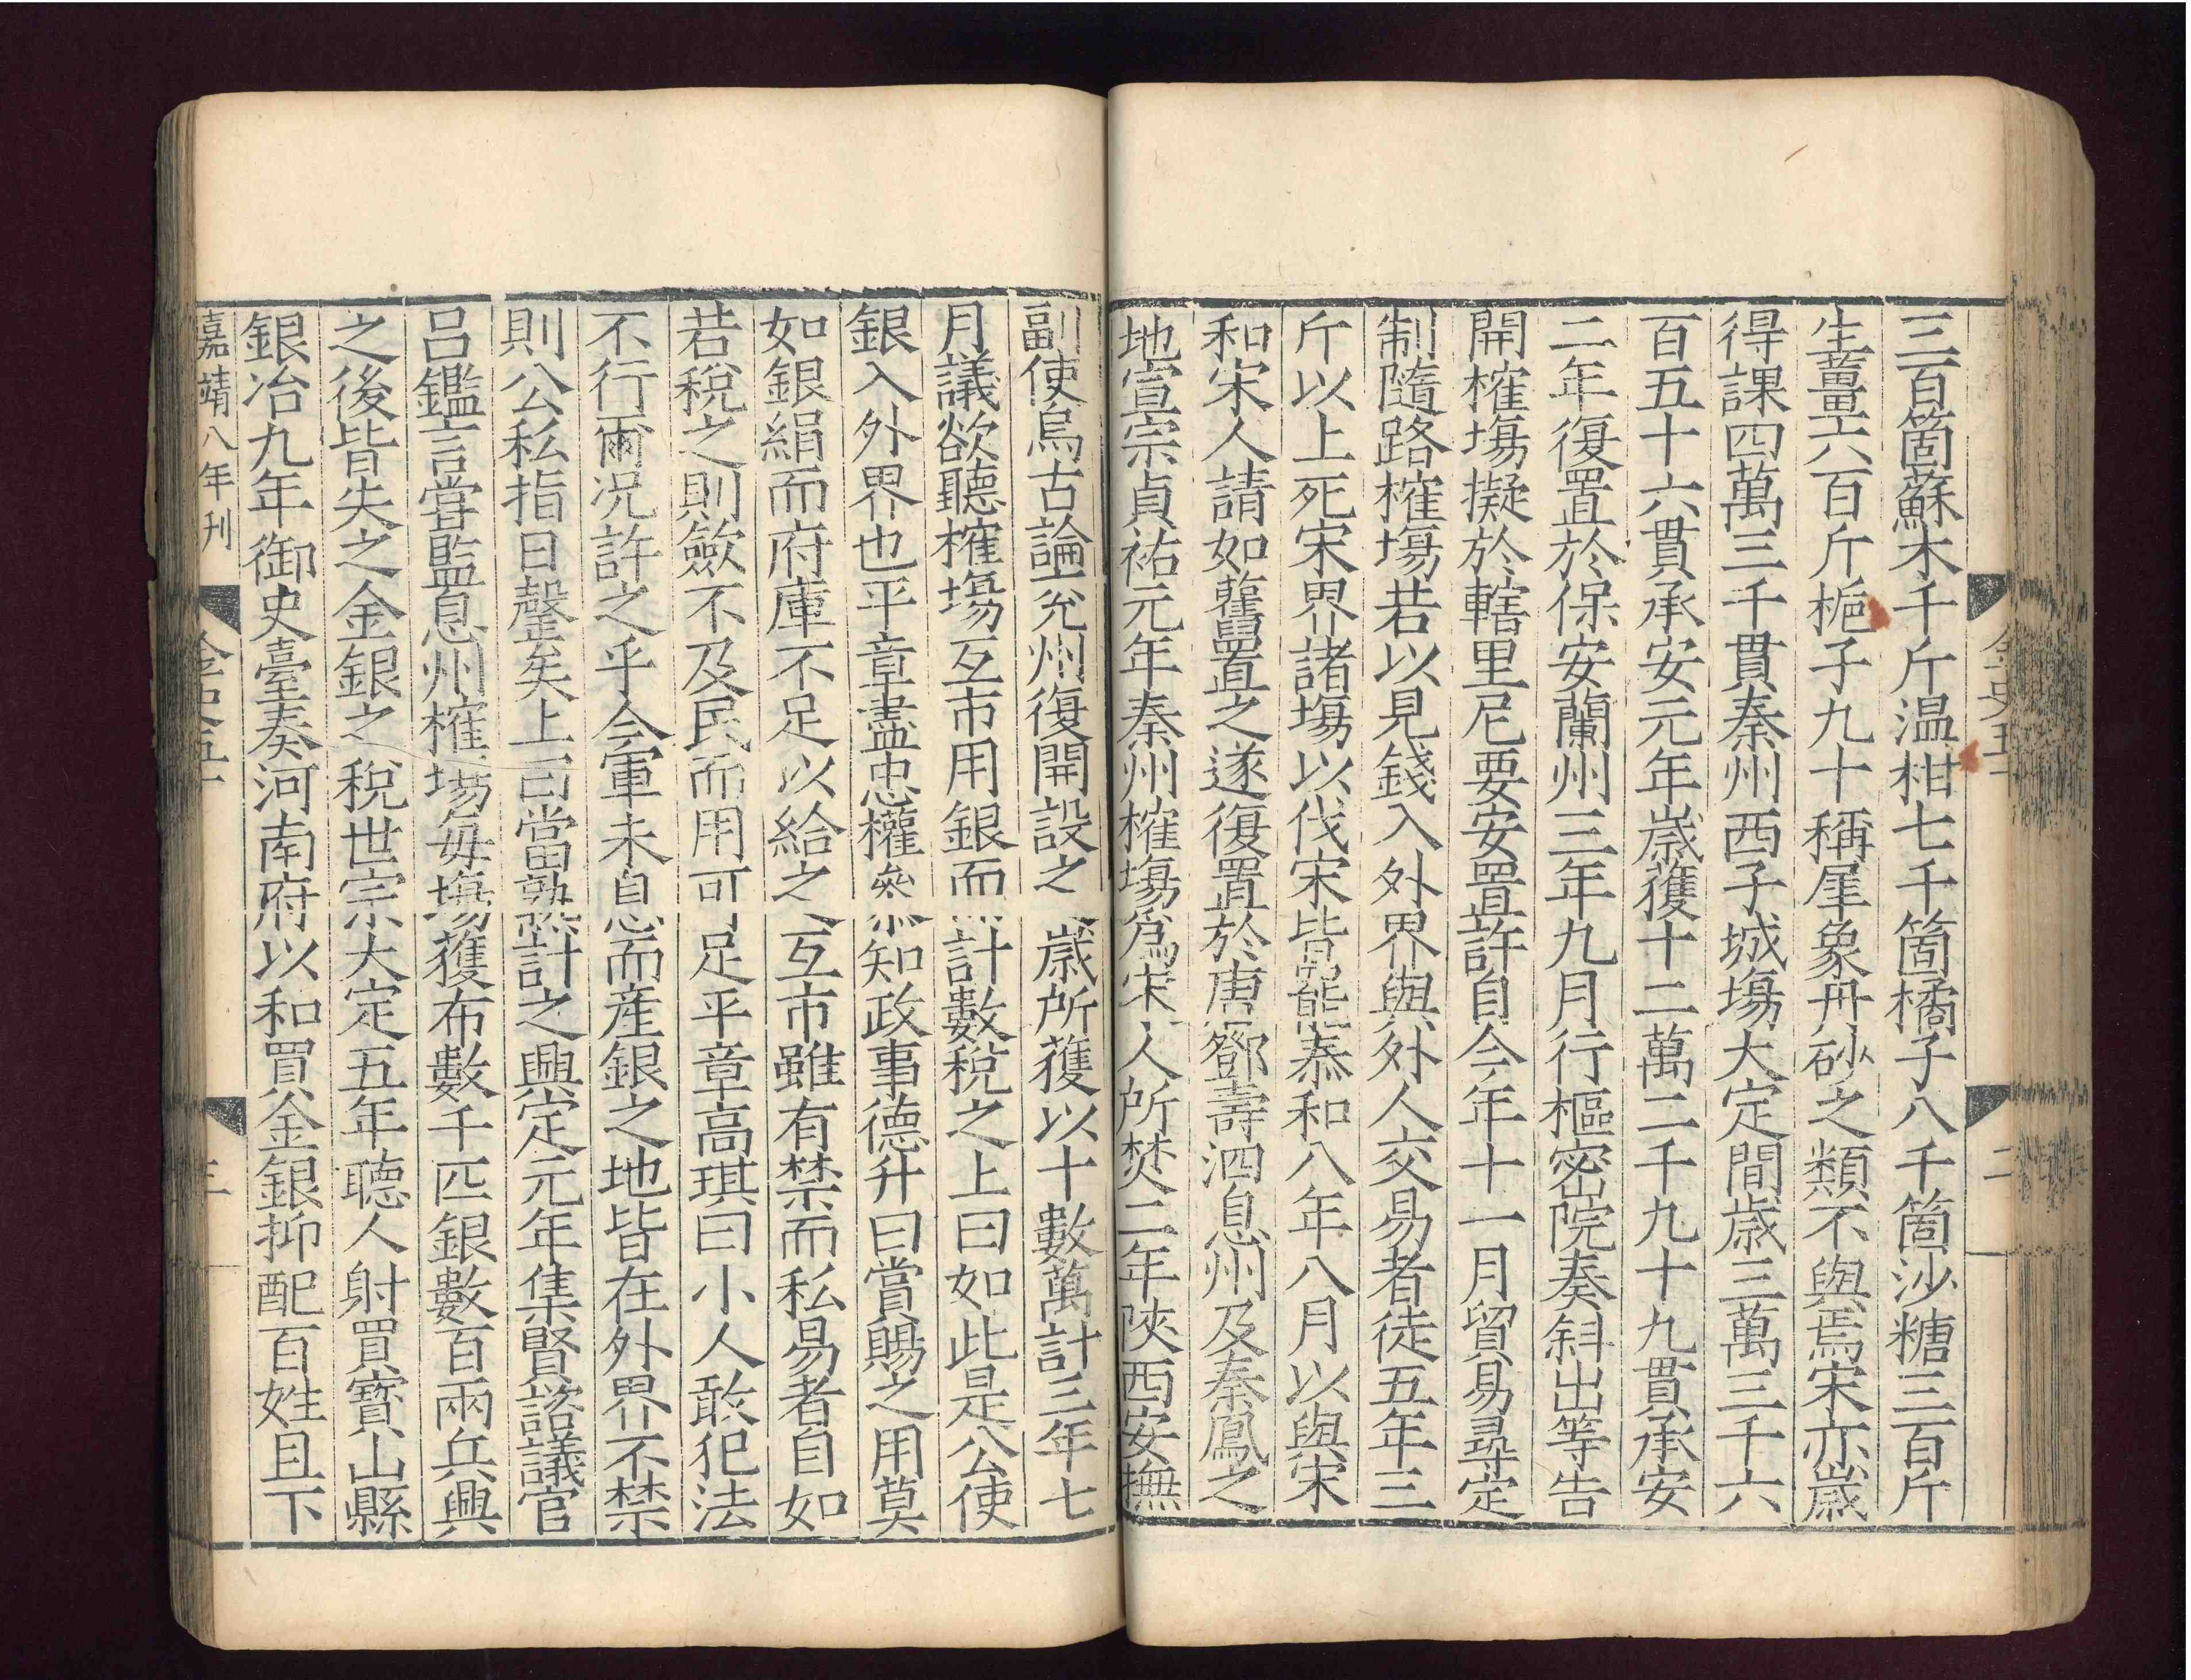 三百箇蘇木千斤温柑七千箇橘子八千箇沙糖三百斤
生薑六百斤梔子九十稱犀象丹砂之類不與焉宋亦歲
得課四萬三千貫秦州西子城塲大定間歲三萬三千六
百五十六貫承安元年歲獲十二萬二千九十九貫承安
二年復置於保安蘭州三年九月行樞密院奏斜出等告
開榷塲擬於轄里尼要安置許自今年十一月貿易尋定
制隨路榷塲若以見錢入外界與外人交易者徒五年三
斤以上死宋界諸塲以伐宋皆罷泰和八年八月以與宋
和宋人請如舊置之遂復置於唐鄧壽泗息州及秦鳳之
地宣宗貞祐元年秦州榷塲爲宋人所焚二年陝西安撫
副使烏古論兖州復開設之歲所獲以十數萬計三年七
月議欲聽榷塲互市用銀而計數稅之上曰如此是公使
銀入外界也平章盡忠權參知政事德升曰賞賜之用莫
如銀絹而府庫不足以給之互市雖有禁而私易者自如
若稅之則斂不及民而用可足平章高琪曰小人敢犯法
不行爾况許之乎今軍未息而産銀之地皆在外界不禁
則公私指日罄矣上曰當熟計之興定元年集賢諮議官
呂鑑言嘗監息州榷塲每塲獲布數千匹銀數百兩兵興
之後皆失之金銀之稅世宗大定五年聽人射買寶山縣
銀冶九年御史臺奏河南府以和買金銀抑配百姓且下
嘉靖八年刊
金史五十
三
金史五十
二